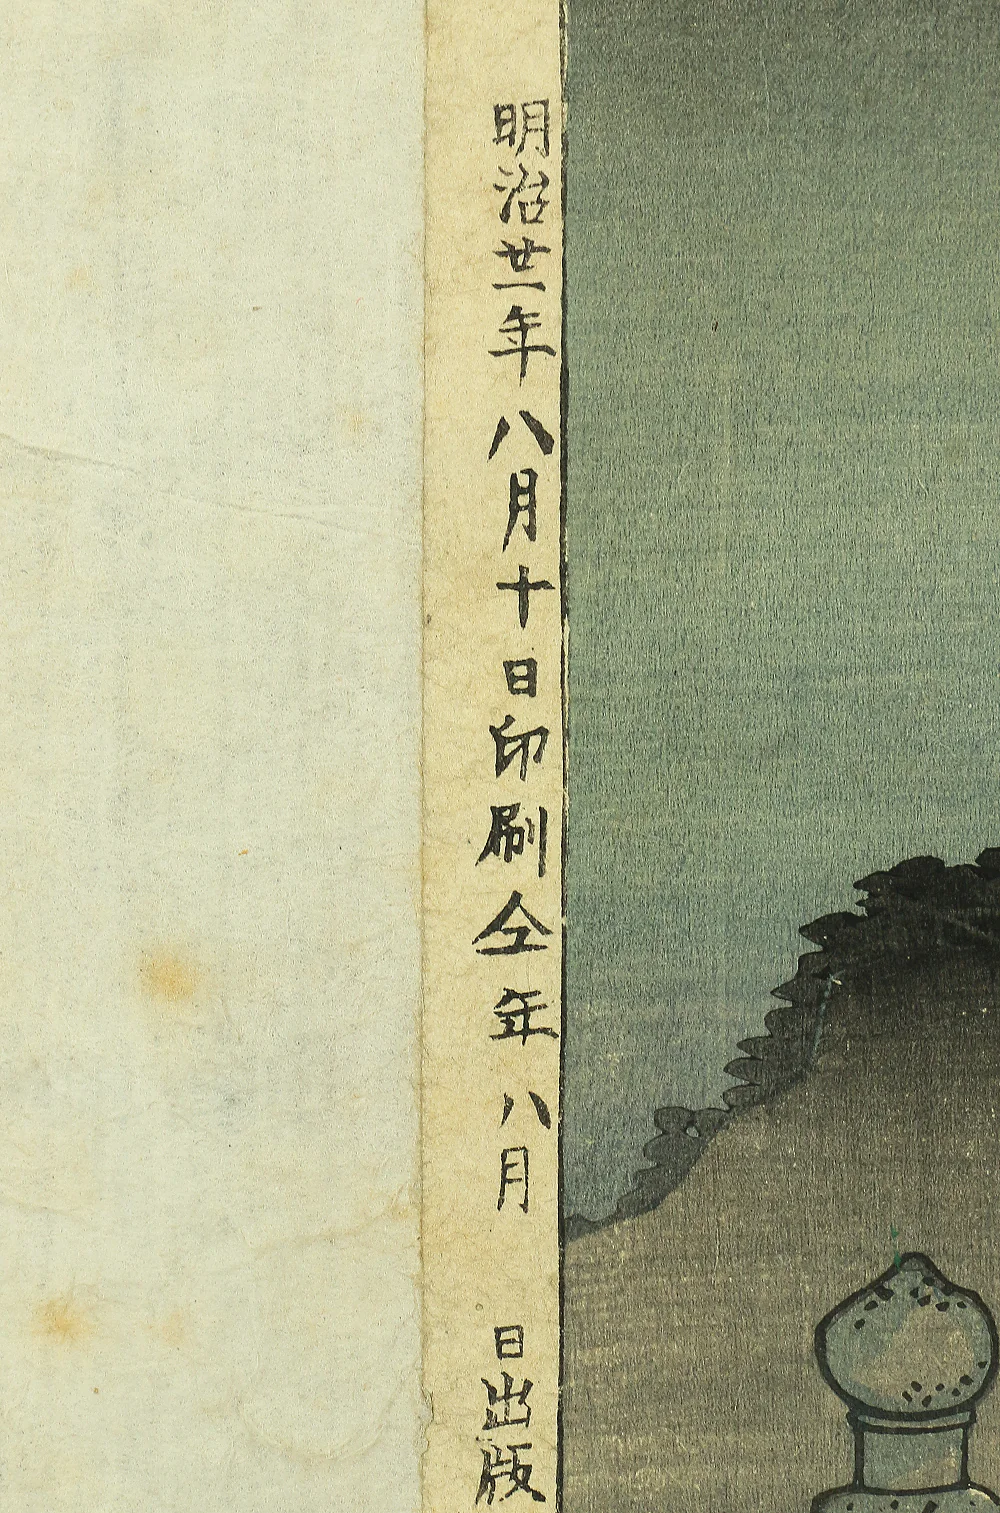 明治廿一年八月十日印刷仝年八月　日出版